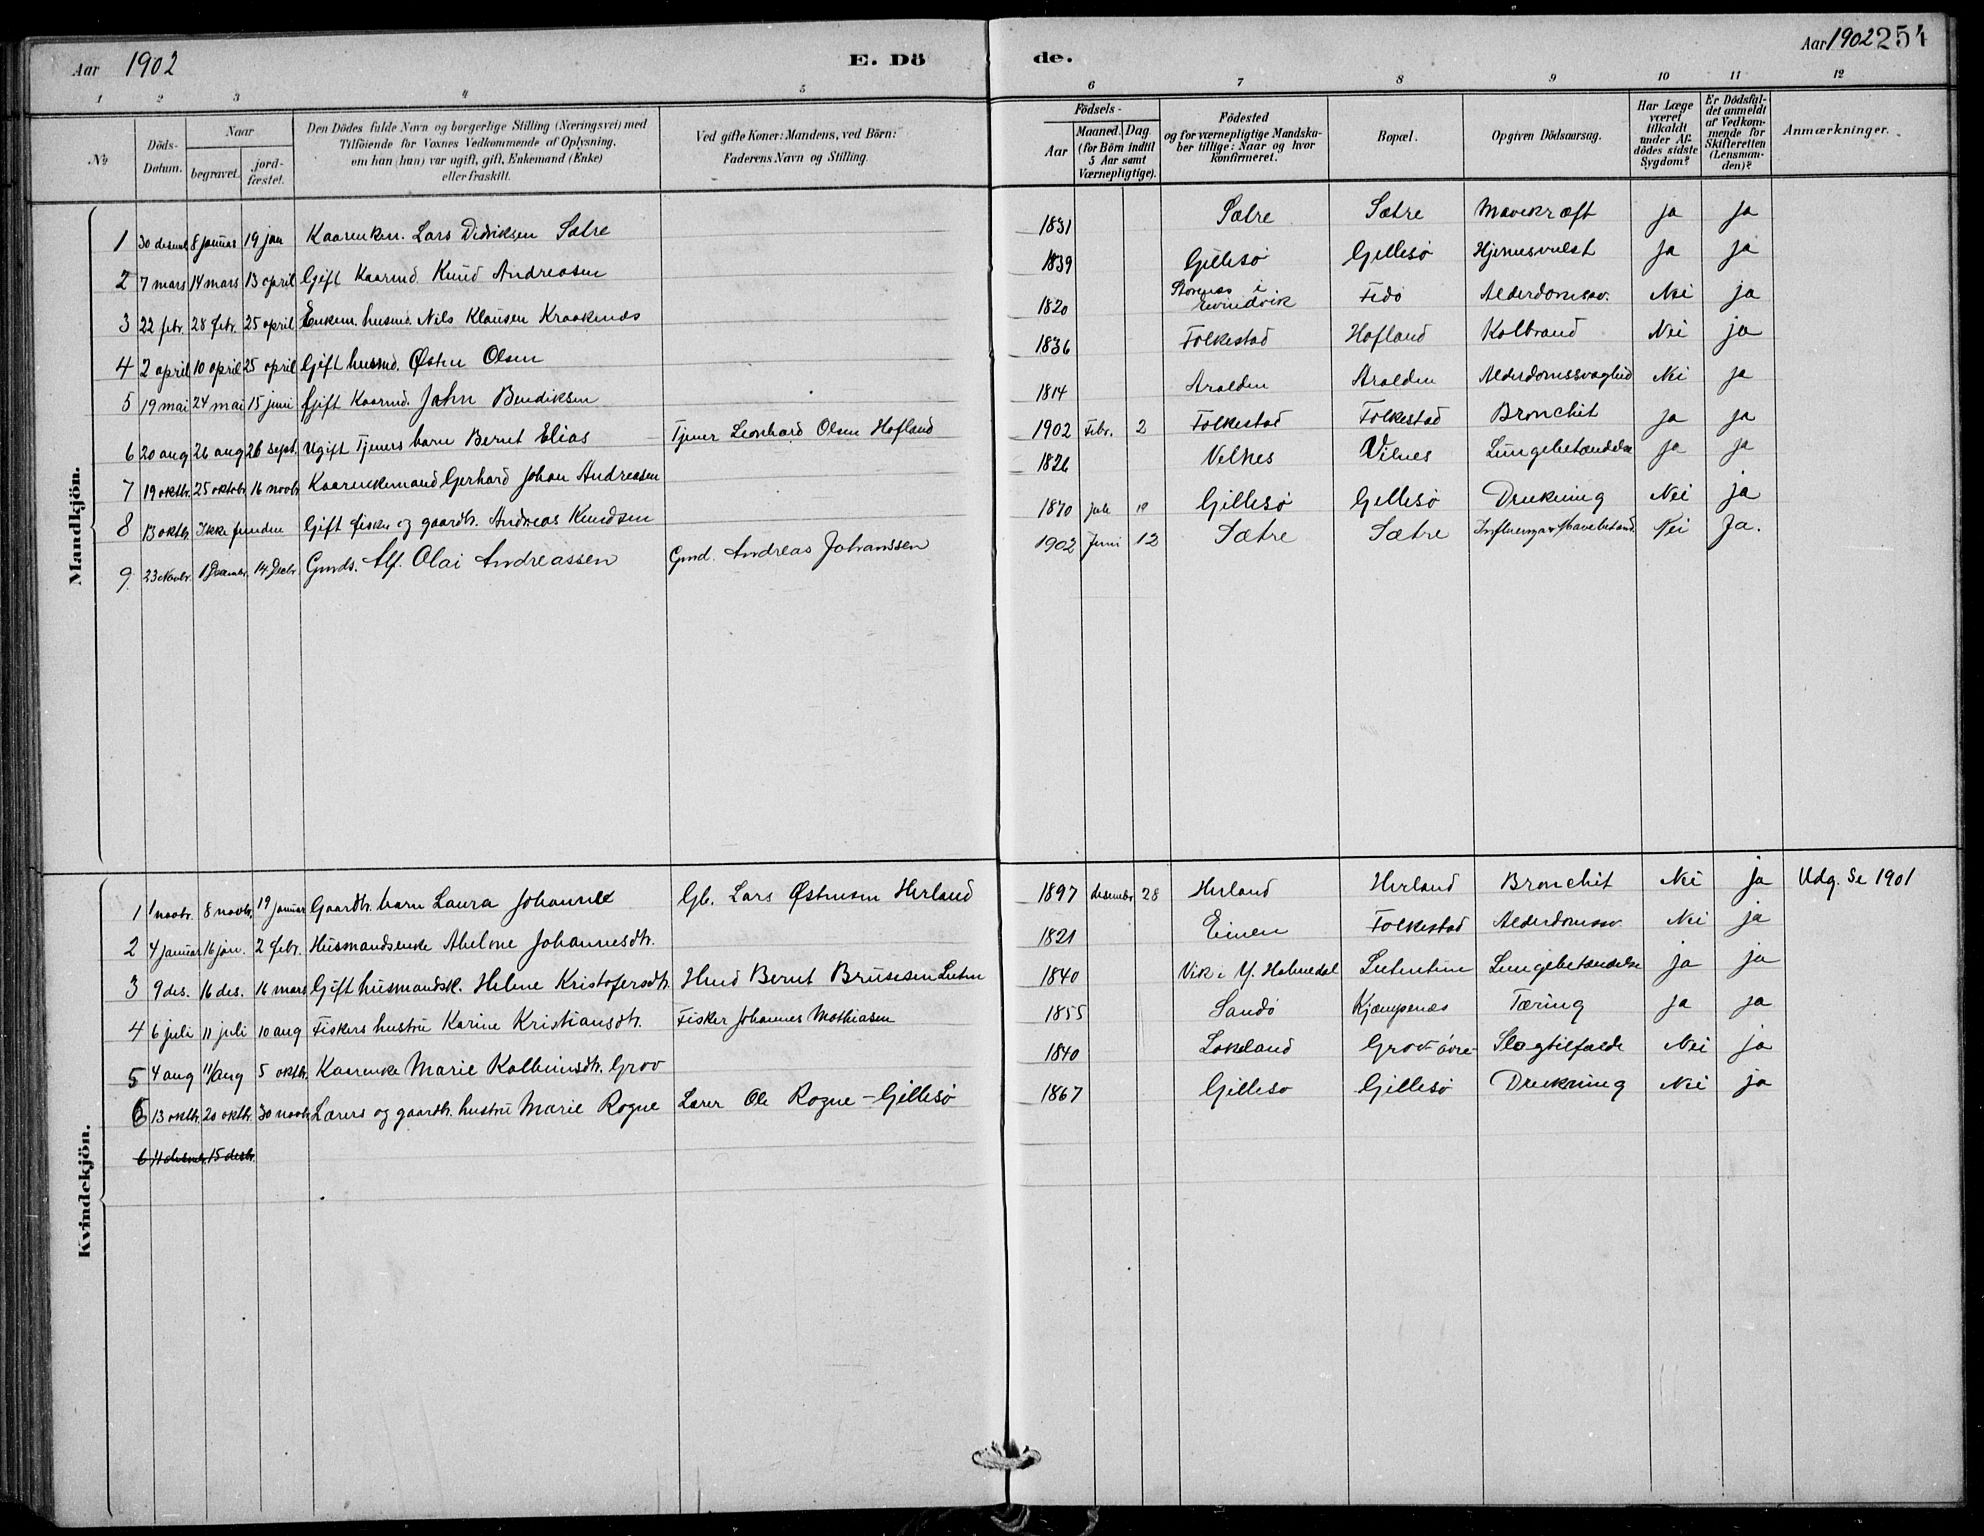 Aar 1902 E. Dö de. Aar 1902 254
1 2 3 4 5 6 7 8 9 10 11 12
No
Döds-Datum.
Naar
begravet.
jord-fæstet.
Den Dödes fulde Navn og borgerlige Stilling (Næringsvei) med
Tilföiende for Voxnes Vedkommende af Oplysning,
om han (hun) var ugift, gift, Enkemand (Enke)
eller fraskilt.
Ved gifte Koner: Mandens, ved Börn:
Faderens Navn og Stilling.
Födsels-
Aar
Maaned. Dag.
(for Börn indtil
5 Aar samt
Værnepligtige).
Födested
og for værnepligtige Mandska-
ber tillige: Naar og hvor
konfirmeret.
Bopæl.
Opgiven Dödsaarsag.
Har Læge
været
tilkaldt
under Af-
dödes sidste
Sygdom?
Er Dödsfal-
det anmeldt
af Vedkom-
mende for
Skifteretten
(Lensman-
den)?
Anmærkninger.
Mandkjön.
1 30 desembr. 8 januar 19 jan Kaarenkem. Lars Didriksen Sætre 1831 Sætre Sætre Mavekræft ja ja
2 7 mars 14 mars 13 april Gift Kaarmd. Knud Andreasen 1839 Gillesø Gillesø Hjernesvulst ja ja
3 22 febr. 28 febr. 25 april Enkem. husmd. Nils Klausen Kraakenes 1820 i Evindvik Fedø Alderdomssv. Nei ja
4 2 april 10 april 25 april Gift husmd. Østen Olsen 1836 Folkestad Hofland Kolbrand Nei ja
5 19 mai 24 mai 15 juni Gift Kaarmd. John Bendiksen 1814 Aralden Aralden Alderdomssvaghed Nei ja
6 20 aug 26 aug 26 sept. Ugift Tjeners barn Bernt Elias Tjener Leonhard Olsen Hofland 1902 Febr. 2 Folkestad Folkestad Bronchit ja ja
7 19 oktbr. 25 oktobr. 16 novbr Kaarenkemand Gerhard Johan Andreasen 1826 Vilnes Vilnes Lungebetændelse ja ja
8 13 oktbr. Ikke funden Gift fisker og gaardbr. Andreas Knudsen 1870 juli 10 Gillesø Gillesø Drukning Nei ja
9. 23 Novbr. 1 Decembr. 14 Decbr. Gmds. Alf. Olai Andreassen Gmd. Andreas Johanssen 1902 Juni 12 Sætre Sætre Influenza & Mavebetænd. Nei Ja.
Kvindekjön.
1 1 novbr. 8 novbr. 19 januar Gaardbr. barn Laura Johanne Gb. Lars Østensen Herland 1897 desembr 28 Herland Herland Bronchit Nei ja Udg. Se 1901
2 4 januar 16 jan. 2 febr. Husmandsenke Abelone Johannesdtr. 1821 Einen Folkestad Alderdomssv. Nei ja
3 9 des. 16 des. 16 mars Gift husmandsk. Helene Kristofersdtr. Hmd Bernt Brusesen 1840 Vik i Y. Holmedal Lungebetændelse ja ja
4 6 juli 11 juli 10 aug Fiskers hustru Karine Kristiansdtr. Fisker Johannes Mathiasen 1855 Sandø Kjempenes Tæring ja ja
5 4 aug 11/aug 5 oktbr. Kaarenke Marie Kolbeinsdtr. Grov 1840 Lokeland Grov øvre Slagtilfælde Nei ja
6 13 oktbr. 20 oktbr. 30 novbr Lærers og gaardbr. hustru Marie Rogne Lærer Ole Rogne - Gillesø 1867 Gillesø Gillesø Drukning Nei ja
6 11 desembr. 15 desbr.